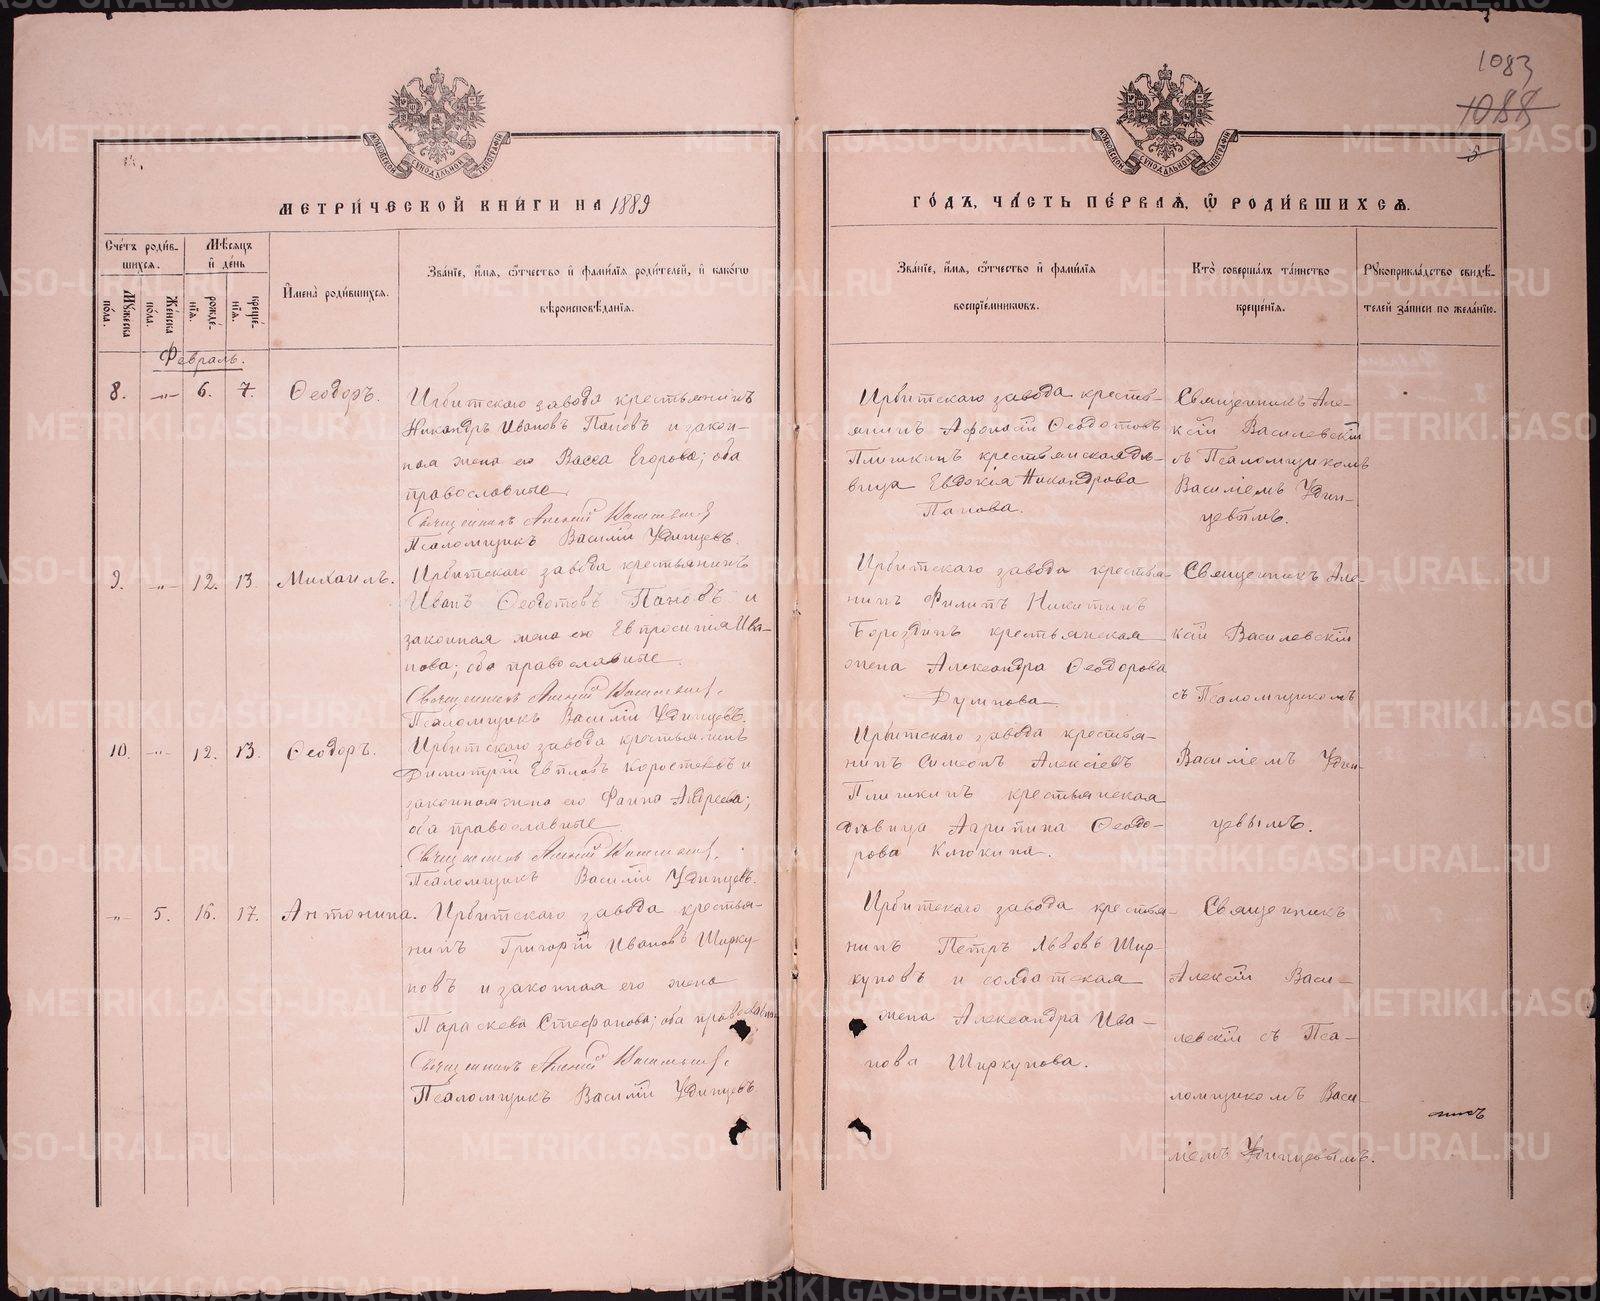 1083
1088
5
МЕТРИ́ЧЕСКОЙ КНИ́ГИ НА 1889
ГО́ДЪ, ЧА́СТЬ ПЕ́РВАЯ, Ѡ РОДИ́ВШИХСЯ.
МОСКОВСКОЙ СѴНОДАЛЬНОЙ ТИПОГРАФІИ
МОСКОВСКОЙ СѴНОДАЛЬНОЙ ТИПОГРАФІИ
Сче́тъ роди́в-
шихся.
Му́жеска
по́ла.
Же́нска
по́ла.
Мѣ́сяцъ
и де́нь
рожде́-
нія.
креще́-
нія.
Имена̀ роди́вшихся.
Зва́ніе, и́мя, о́тчество и фами́лія роди́телей, и како́гѡ
вѣроисповѣ́данія.
Зва́ніе, и́мя, о́тчество и фами́лія
воспріе́мниковъ.
Кто̀ соверша́лъ та́инство
креще́нія.
Рукоприкла́дство свидѣ́-
телей за́писи по жела́нію.
Февраль.
8. -"- 6. 7. Ѳеодоръ.
Ирбитскаго завода крестьянинъ
Никандръ Ивановъ Пановъ и закон-
ная жена его Васса Егорова; оба
православные
Священникъ Алексій Василевскій
Псаломщикъ Василій Удинцевъ.
Ирбитскаго завода кресть-
янинъ Афонасій Ѳеодотовъ
Плишкинъ крестьянская дѣ-
вица Евдокія Никандрова
Панова.
Священникъ Але-
ксій Василевскій
съ Псаломщикомъ
Василіемъ Удин-
цевымъ.
9. -"- 12. 13. Михаилъ.
Ирбитскаго завода крестьянинъ
Иванъ Ѳеодотовъ Пановъ и
законная жена его Евпросинія Ива-
нова; оба православные.
Священникъ Алексій Василевскій.
Псаломщикъ Василій Удинцевъ.
Ирбитскаго завода крестья-
нинъ Филипъ Никитинъ
Бороздинъ крестьянская
жена Александра Ѳеодорова
Священникъ Але-
ксій Василевскій
съ Псаломщикомъ
Василіемъ Удин-
цевымъ.
10. -"- 12. 13. Ѳеодоръ.
Ирбитскаго завода крестьянинъ
Димитрій Евплов Коростелевъ и
законная жена его Фаина Андреева;
оба православные
Священникъ Алексій Василевскій.
Псаломщикъ Василій Удинцевъ.
Ирбитскаго завода крестья-
нинъ Симеонъ Алексіевъ
Плишкинъ крестьянская
дѣвица Агрипина Ѳеодо-
рова Клюкина.
-"- 5. 16. 17. Антонина.
Ирбитскаго завода крестья-
нинъ Григорій Ивановъ Ширку-
новъ и законная его жена
Параскева Стефанова; оба православные
Священникъ Алексій Василевскій.
Псаломщикъ Василій Удинцевъ
Ирбитскаго завода крестья-
нинъ Петръ Львовъ Шир-
куновъ и солдатская
жена Александра Ива-
нова Ширкунова.
Священникъ
Алексій Васи-
левскій съ Пса-
ломщикомъ Васи-
ліемъ Удинцевымъ.
METRIKI.GASO-URAL.RU